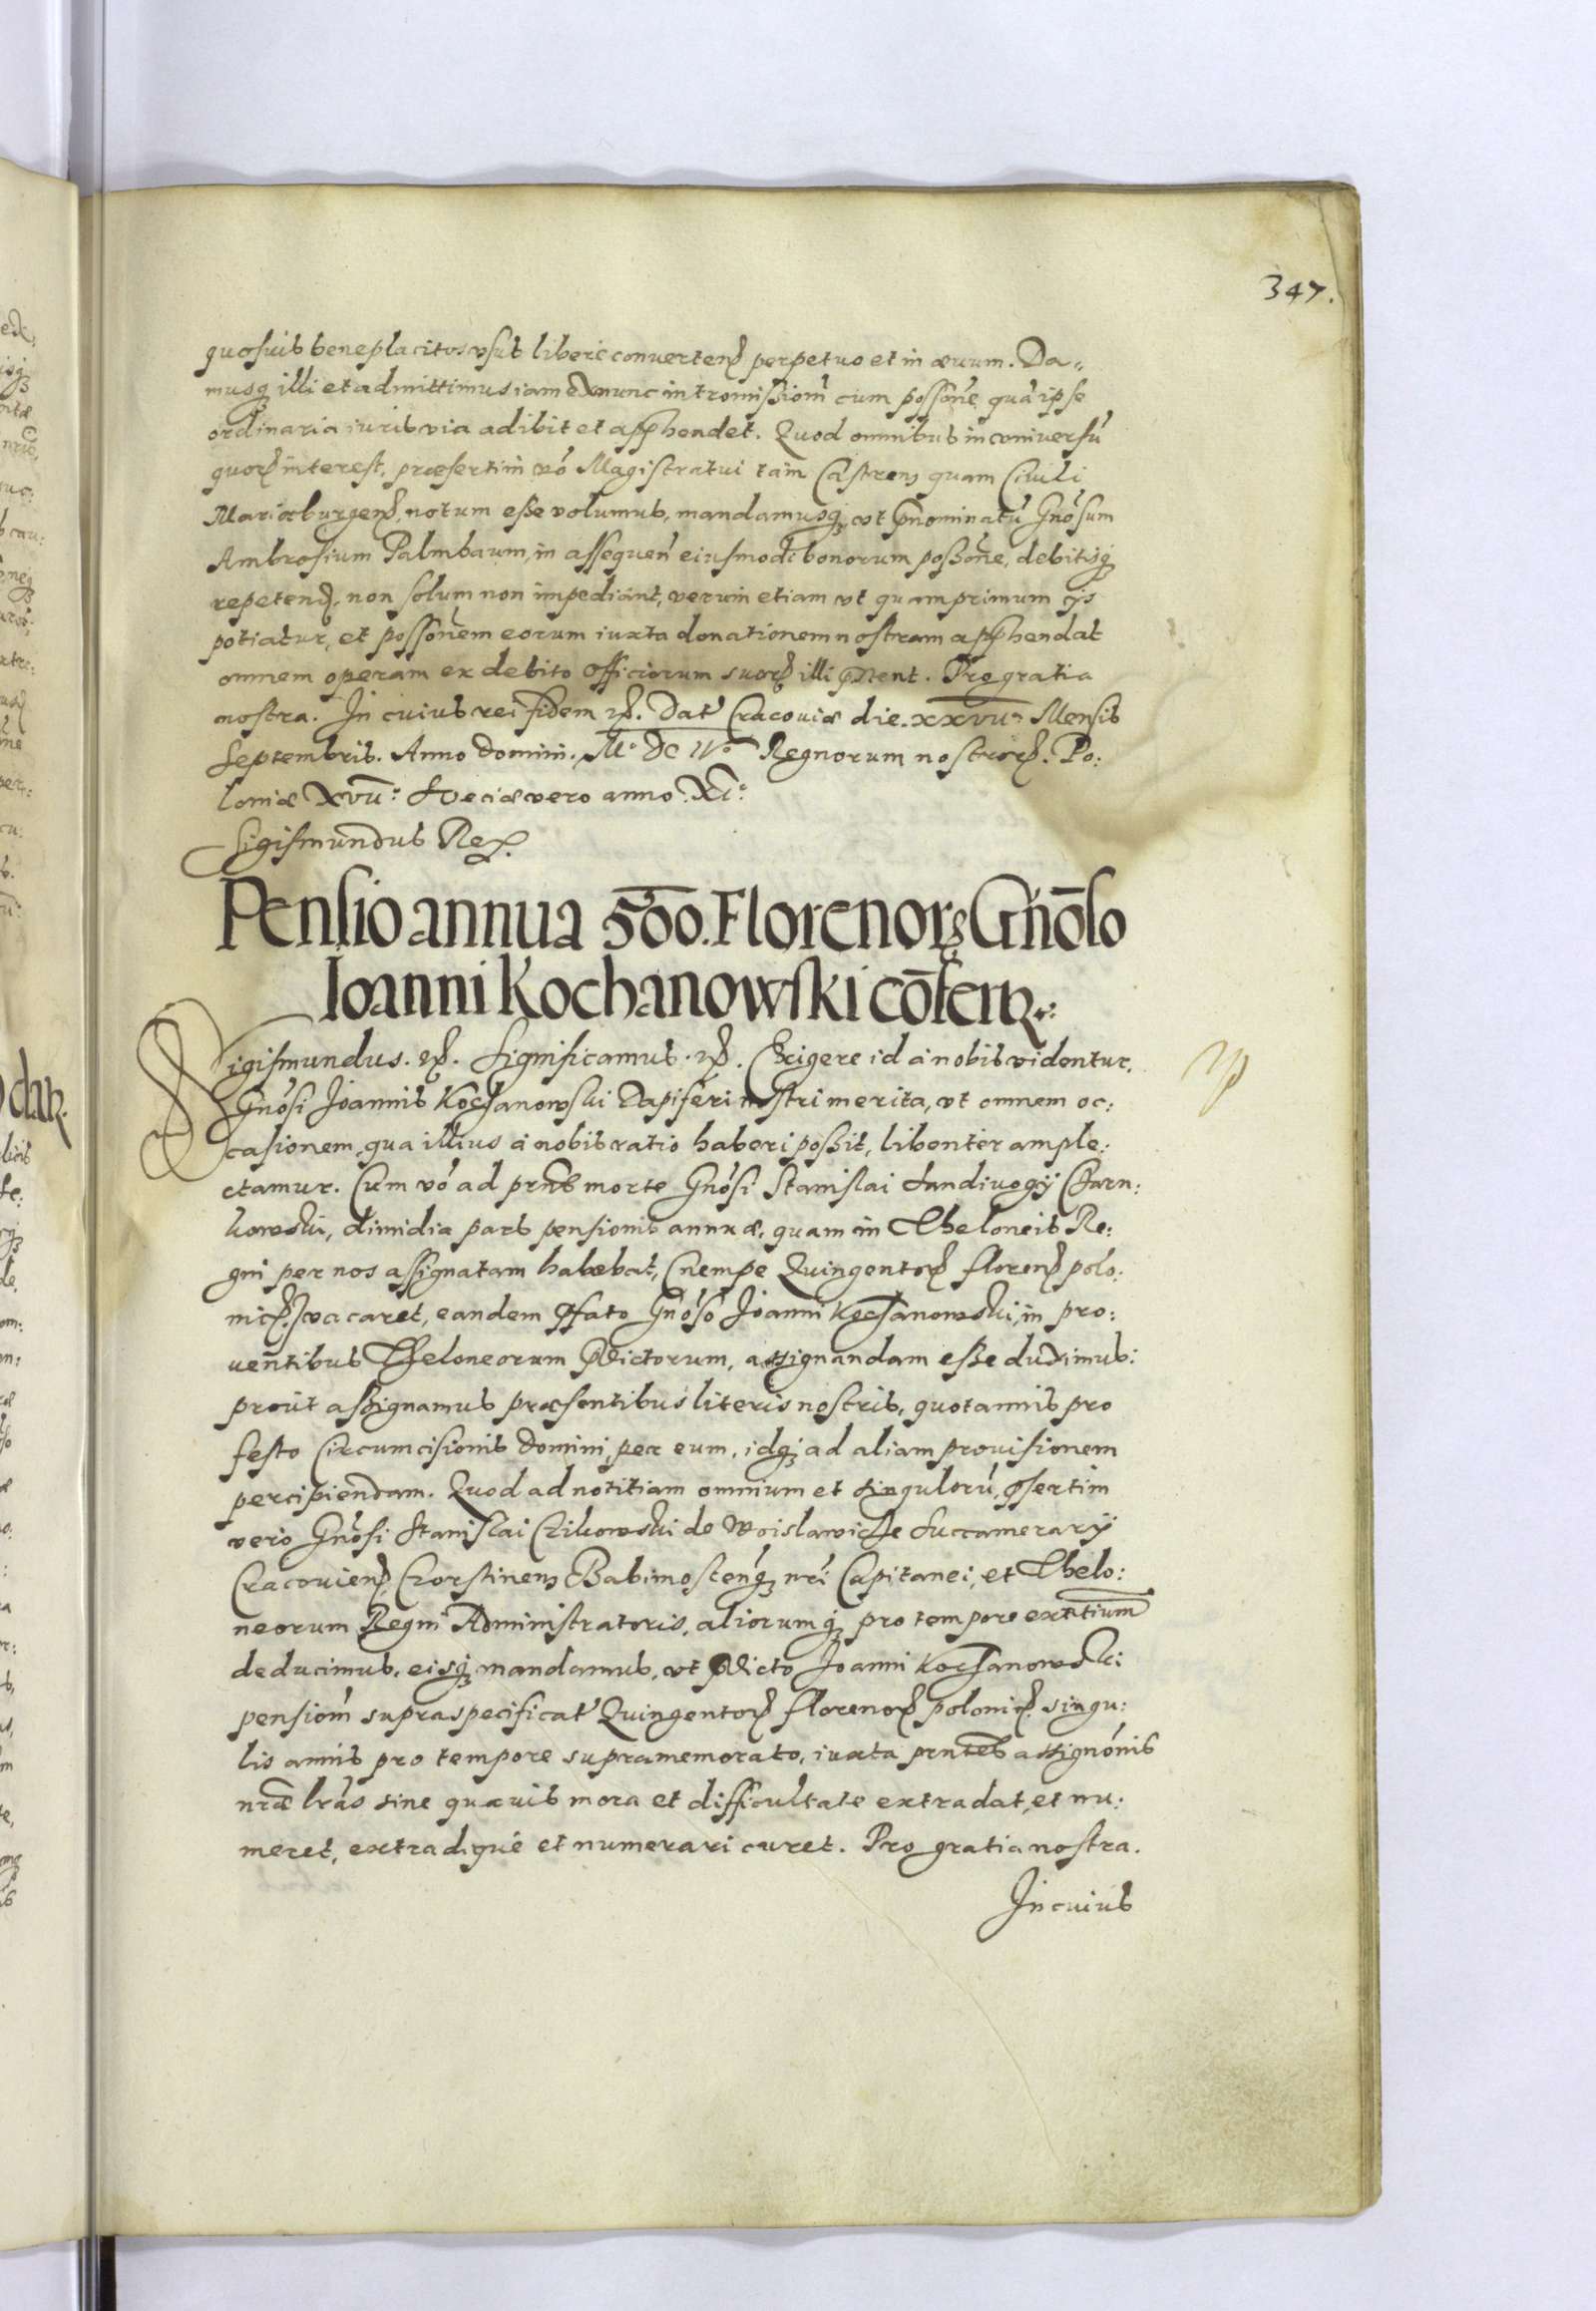 347.
quosuis beneplacitos vsus libere conuertend perpetuo et in æuum. Da„
musq illi et admittimus iam ex nunc intromissiom̃ cum possone quã ipse
ordinaria iuris via adibit et apphendet. Quod omnibus in vniuersũ
quorum interest, præsertim vo Magistratui tam Castren quam Ciuili
Mariæburgen, notum esse volumus, mandamusq, vt pnominatũ Gnosum
Ambrosium Palmbaum, in assequen eiusmodi bonorum possone, debitisq
repetend, non solum non impediant, verum etiam vt quamprimum ijs
potiatur, et possonem eorum iuxta donationem nostram apphendat
omnem operam ex debito officiorum suor illi pstent. Pro gratia
nostra. In cuius rei fidem etc. Dat Cracouiæ die. xxvii Mensis
Septembris. Anno Domini. Mº DC IVº Regnorum nostror. Po:
loniæ Xvii: Sveciæ vero anno. XI:
Sigismundus Rex.
Pensio annua 500. Florenor Gnoso
Ioanni Kochanowski cōfertur.
Sigismundus. etc. Significamus. etc. Exigere id a nobis videntur,
Gnosi Joannis Kochanowski Dapiferi nostri merita, vt omnem oc:
casionem, qua illius a nobis ratio haberi possit, libenter ample:
ctamur. Cum vo ad prns morte Gnosi Stanislai Sandiuogij Charn:
kowski, dimidia pars pensionis annuæ, quam in Theloneis Re:
gni per nos assignatam habebat, (nempe Quingentor floren polo:
nic.) vacaret, eandem pfato Gnoso Joanni Kochanowski, in pro:
uentibus Theloneorum pdictorum, assignandam esse duximus:
prout assignamus præsentibus literis nostris, quotannis pro
festo Circumcisionis Domini, per eum, idq ad aliam prouisionem
percipiendam. Quod ad notitiam omnium et singulorũ, psertim
vero Gnosi Stanislai Czikowski de Woislawicze Succamerarij
Cracouien, Czorstinen Babimostenq nri Capitanei, et Thelo:
neorum Regni Administratoris, aliorumq pro tempore extntium
deducimus, eisq mandamus, vt pdicto Joanni Kochanowski
pensiom̃ supraspecificat Quingentor florenor polonic. singu:
lis annis pro tempore supramemorato, iuxta prntes assignonis
nræ lras sine quauis mora et difficultate extradat, et nu:
meret, extradique et numerari curet. Pro gratia nostra.
In cuius